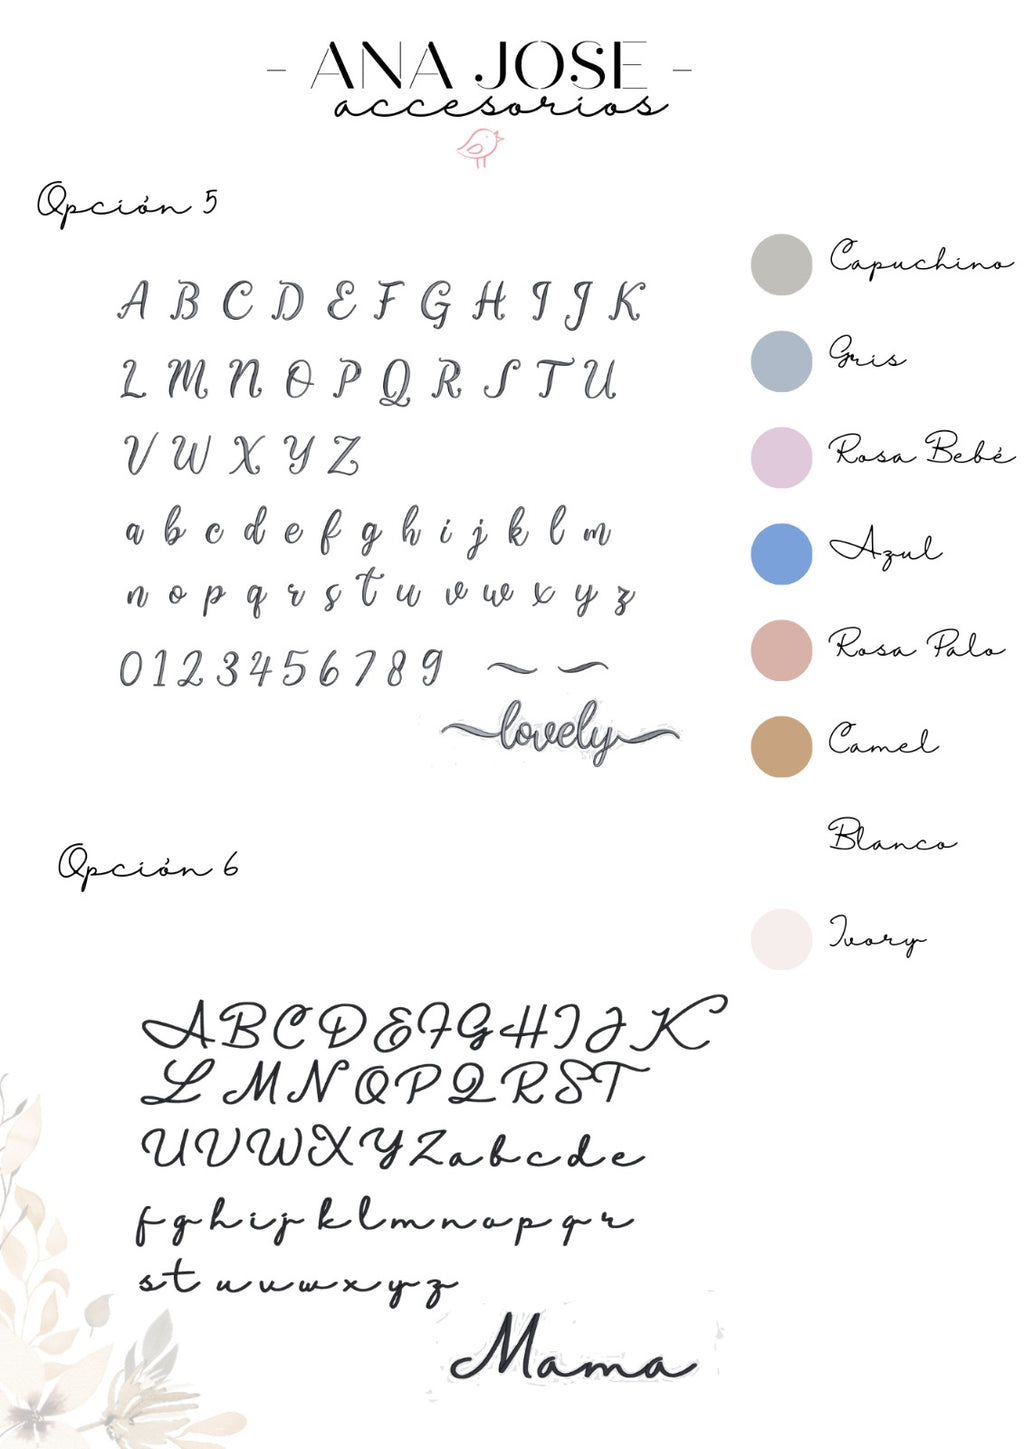 - ANA JOSE -
accesorios
Opción 5
A B C D E F G H I J K
L M N O P Q R S T U
V W X Y Z
a b c d e f g h i j k l m
n o p q r s t u v w x y z
0 1 2 3 4 5 6 7 8 9
lovely
Capuchino
Gris
Rosa Bebé
Azul
Rosa Palo
Camel
Blanco
Ivory
Opción 6
A B C D E F G H I J K
L M N O P Q R S T
U V W X Y Z a b c d e
f g h i j k l m n o p q r
s t u v w x y z
Mama